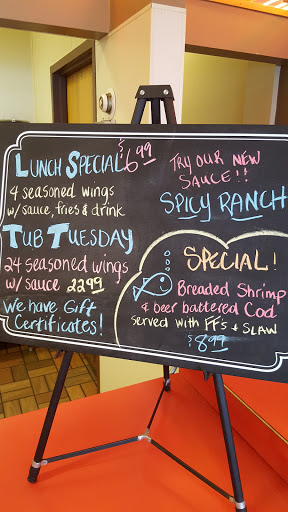 Lunch Special: $6.99
4 seasoned wings
w/ sauce, fries & drink
Tub Tuesday
24 seasoned wings
w/ sauce 22.99
We have Gift
Certificates!
Try our new
sauce!!
Spicy Ranch
Special!
Breaded Shrimp
& beer battered Cod
served with FF's + Slaw
$8.99